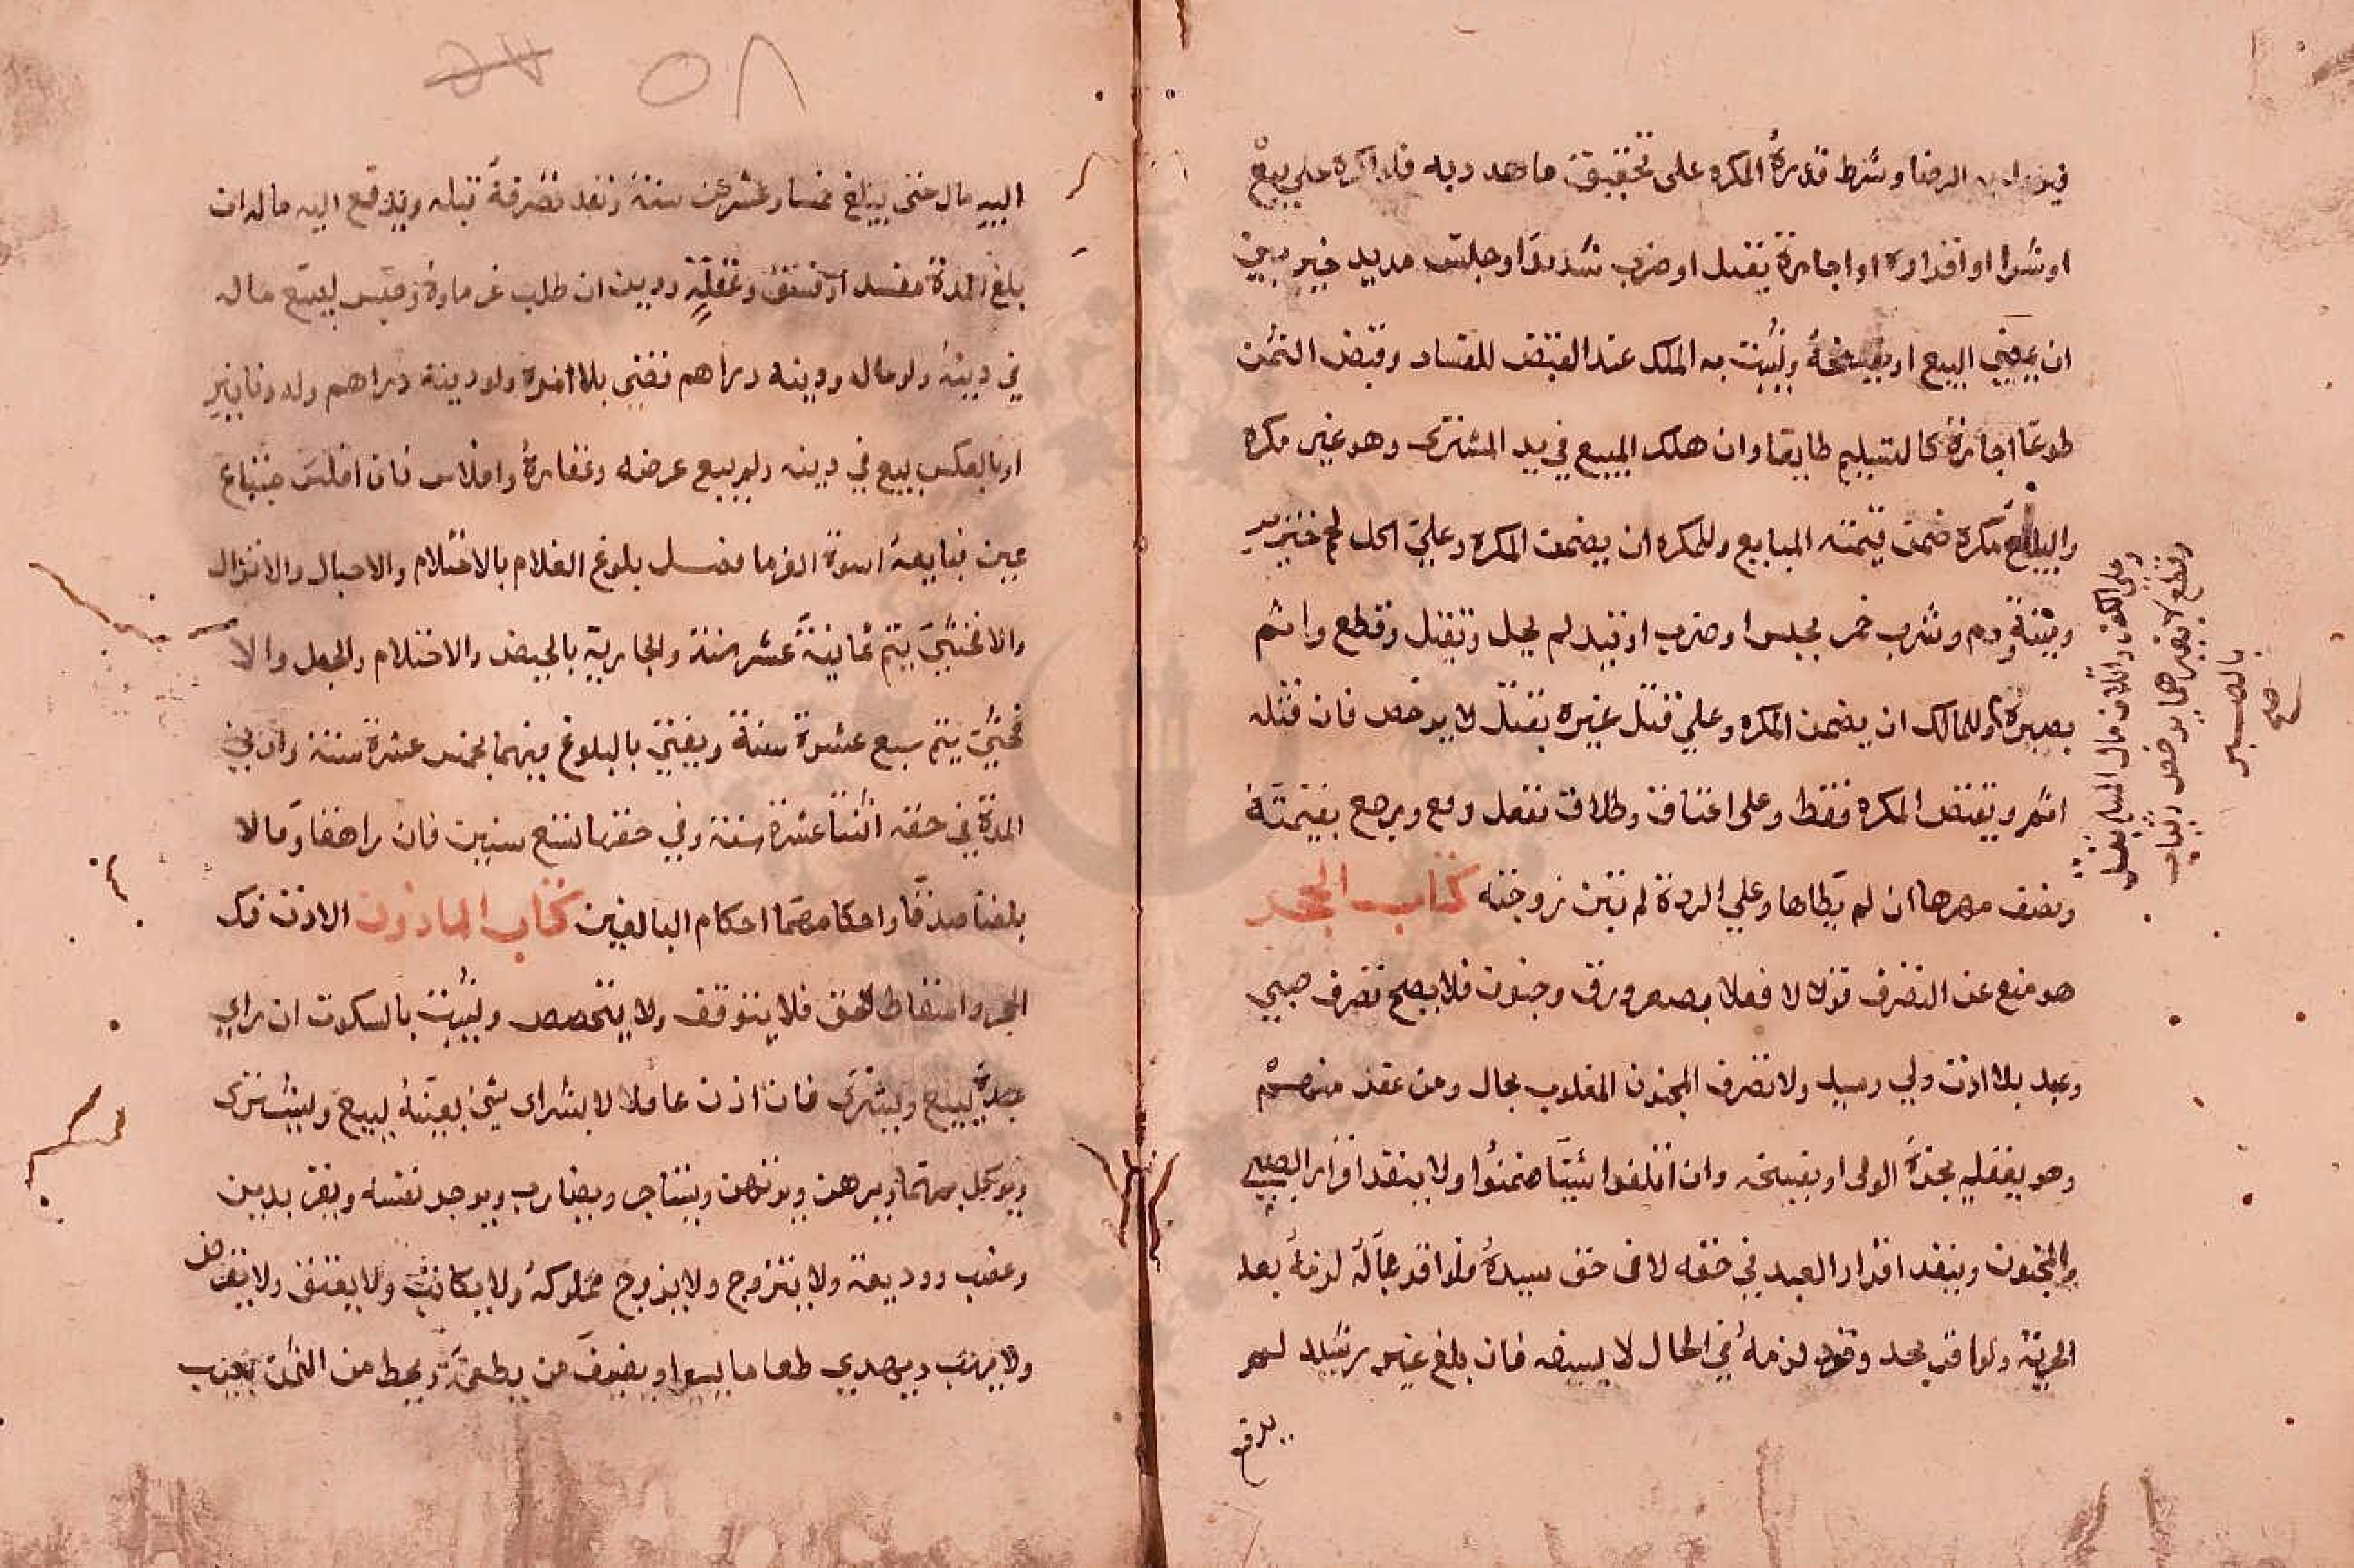 فيعدم به الرضا وشرط قدرة المكره على تحقيق ما هدد به فلو اكره على بيع
او شرا او اقرار او اجارة بقتل او ضرب شديد او حبس مديد خير بين
ان يمضي البيع او يفسخه ويثبت به الملك عند القبض للفساد وقبض الثمن
طوعا اجازة كالتسليم طايعا وان هلك المبيع في يد المشترى وهو غير مكره
والبايع مكره ضمن قيمته للبايع وللمكره ان يضمن المكره وعلى اكل لحم خنزير
وميتة ودم وشرب خمر بحبس او ضرب او قيد لم يحل وبقتل وقطع واثم
بصبره وللمالك ان يضمن المكره وعلى قتل غيره بقتل لا يرخص فان قتله
اثم ويقتص المكره فقط وعلى اعتاق وطلاق ففعل وقع ويرجع بقيمته
ونصف مهرها ان لم يطاها وعلى الردة لم تبن زوجته كتاب الحجر
هو منع عن التصرف قولا لا فعلا بصغر ورق وجنون فلا يصح تصرف صبي
وعبد بلا اذن ولي وسيد ولا تصرف المجنون المغلوب بحال ومن عقد منهم
وهو يعقله يجيزه الولى او يفسخه وان اتلفوا شيئا ضمنوا ولا ينفذ اقرار الصبي
والمجنون وينفذ اقرار العبد في حقه لا في حق سيده فلو اقر بمال لزمه بعد
الحرية ولو اقر بحد وقود لزمه في الحال لا بسفه فان بلغ غير رشيد لم
يدفع
وعلى الكفر واتلاف مال المسلم بقتل
وقطع لا بغيرهما يرخص ويثاب
بالصبر
صح
٥٨
اليه مال حتى يبلغ خمسا وعشرين سنة ونفذ تصرفه قبله ويدفع اليه ماله ان
بلغ المدة مفسدا وفسق وغفلة ودين ان طلب غرماوه وحبس ليبيع ماله
في دينه ولو مال ودينه دراهم قضى بلا امره ولو دينه دراهم وله دنانير
او بالعكس بيع في دينه ولم يبع عرضه وعقاره وافلاس فان افلس مبتاع
عين فبايعه اسوة الغرما فصل بلوغ الغلام بالاحتلام والاحبال والانزال
والا فحتى يتم ثمانية عشر سنة والجارية بالحيض والاحتلام والحبل والا
فحتى يتم سبع عشرة سنة ويفتى بالبلوغ فيهما بخمس عشرة سنة وادنى
المدة في حقه اثنتا عشرة سنة وفي حقها تسع سنين فان راهقا وقالا
بلغنا صدقا واحكامهما احكام البالغين كتاب الماذون الاذن فك
الحجر واسقاط الحق فلا يتوقف ولا يتخصص ويثبت بالسكوت ان راي
عبده يبيع ويشترى فان اذن عاما لا بشراى شي بعينه يبيع ويشترى
ويوكل بهما ويرهن ويرتهن ويستاجر ويضارب ويوجر نفسه ويقر بدين
وغصب ووديعة ولا يتزوج ولا يزوج مملوكه ولا يكاتب ولا يعتق ولا يقرض
ولا يهب ويهدي طعاما يسيرا ويضيف من يطعمه ويحط من الثمن بعيب